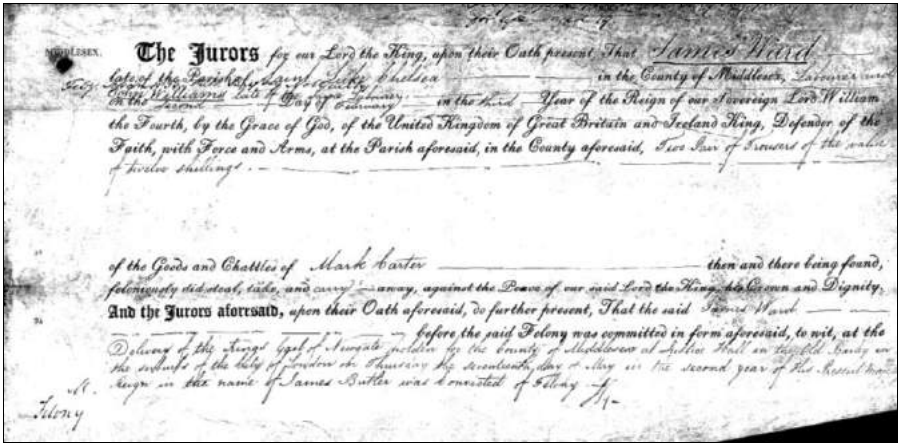 MIDDLESEX.
The Jurors for our Lord the King, upon their Oath present, That James Ward
late of the Parish of Saint Luke Chelsea in the County of Middlesex, Labourer and
Williams late of the same
on the second Day of February in the third Year of the Reign of our Sovereign Lord William
the Fourth, by the Grace of God, of the United Kingdom of Great Britain and Ireland King, Defender of the
Faith, with Force and Arms, at the Parish aforesaid, in the County aforesaid, Two Pair of Trousers of the value
of twelve shillings.
of the Goods and Chattles of Mark Carter then and there being found,
feloniously did steal, take, and carry away, against the Peace of our said Lord the King, his Crown and Dignity.
And the Jurors aforesaid, upon their Oath aforesaid, do further present, That the said James Ward
before the said Felony was committed in form aforesaid, to wit, at the
Delivery of the Kings Gaol of Newgate holden for the County of Middlesex at Justice Hall in the Old Bailey in
the suburbs of the City of London on Thursday the seventeenth day of May in the second year of His present
Reign in the name of James Butler was Convicted of Felony
Felony